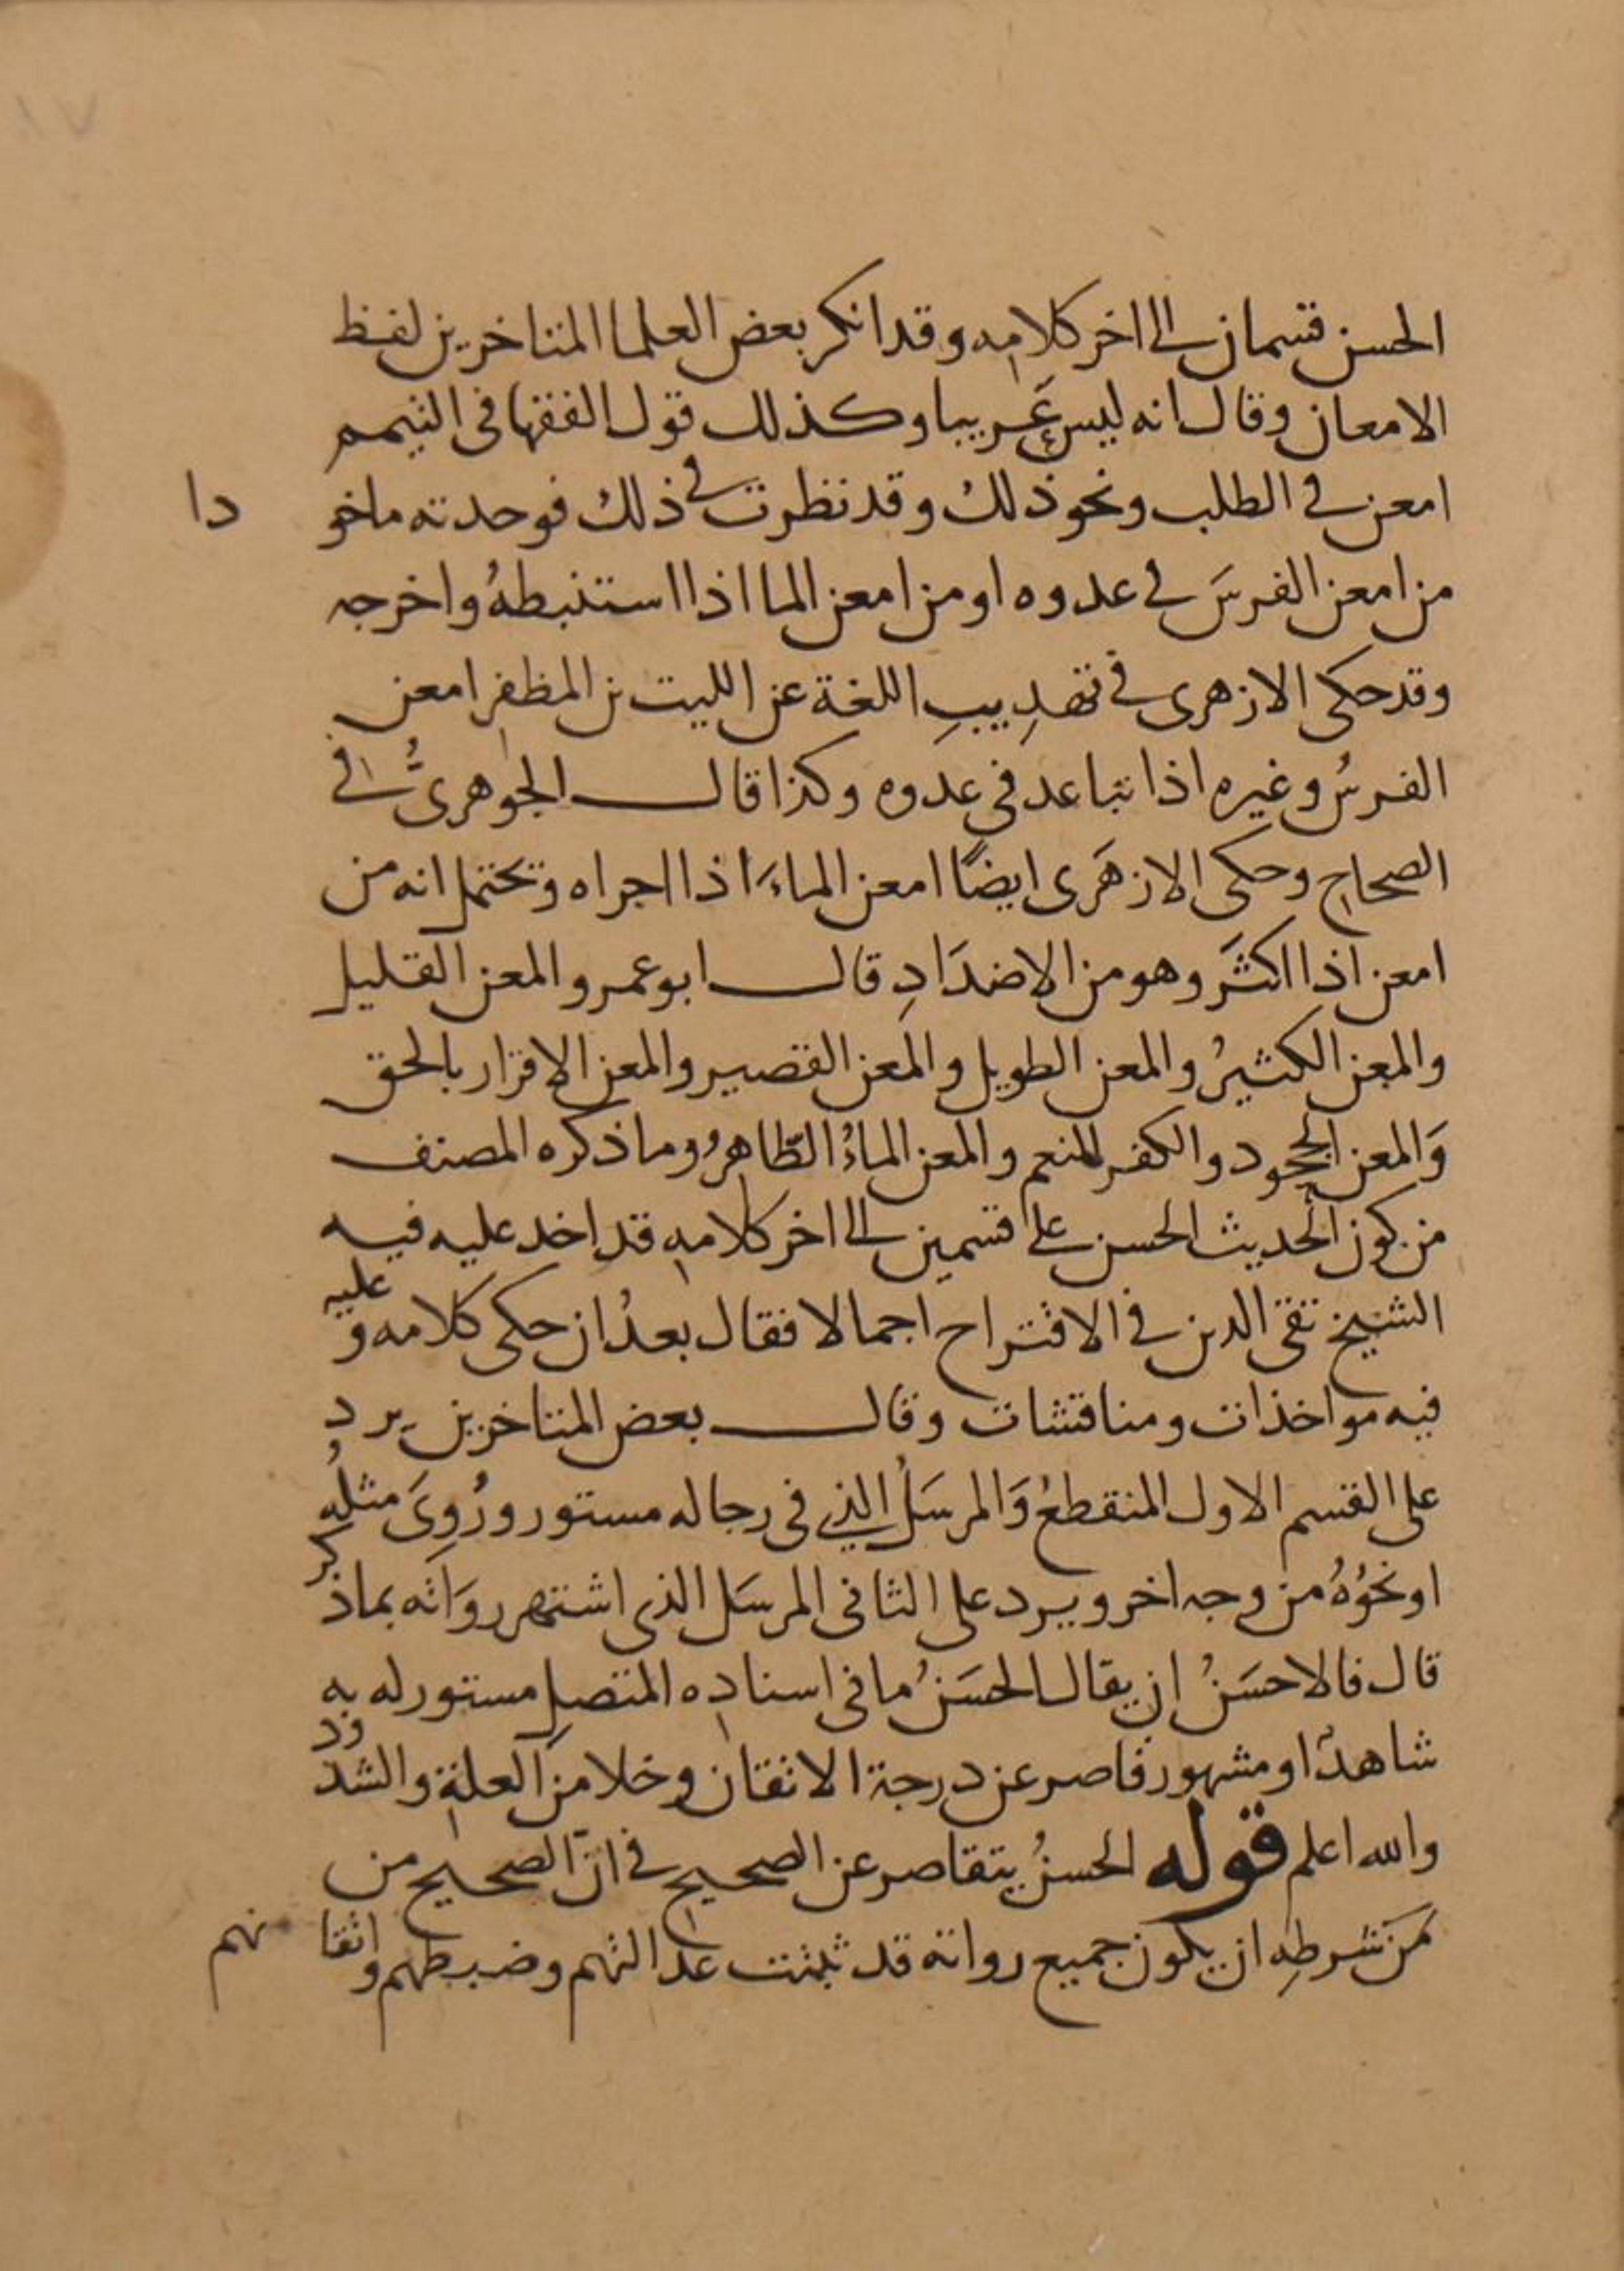 الحسن قسمان الى اخر كلامه وقد انكر بعض العلما المتاخرين لفظ
الامعان وقال انه ليس عَربيا وكذلك قول الفقها فى التيمم
امعن في الطلب ونحو ذلك وقد نظرت في ذلك فوحدته ماخو دا
من امعن الفرسَ في عدوه او من امعن الما اذا استنبطهُ واخرجه
وقد حكى الازهرى في تهدِيبِ اللغة عن الليت بن المظفر امعن
الفرسُ وغيره اذا تباعد في عدوه وكذا قال الجوهرىُّ في
الصحاح وحكى الازهَرى ايضًا امعن الماءَ اذا اجراه وتحتمل انه من
امعن اذا اكثَر وهو من الاضدَادِ قال ابو عمرو المعن القليل
والمعن الكثيرُ والمعن الطويل والمعن القصير والمعن الاقرار بالحق
وَالمعن الجحود والكفر للمنعم والمعن الماءُ الظّاهرُ وما ذكره المصنف
من كون الحديث الحسن على قسمين الى اخر كلامه قد اخد عليه فيه
الشيخ تقى الدين في الاقتراح اجمالا فقال بعدُ ان حكى كلامه و عليه
فيه مواخذات ومناقشات وقال بعض المتاخرين يرد
على القسم الاول المنقطعُ وَالمرسَلُ الذي فى رجاله مستور ورُوِىَ مثلُه
او نحوُهُ من وجه اخر ويرد على الثانى المرسَل الذى اشتهر روَاته بماذ كر
قال فالاحسَنُ ان يقال الحسَنُ ما فى اسناده المتصل مستور له به
شاهدٌ او مشهور قاصر عن درجة الاتقان وخلا من العلة والشد ود
والله اعلم قوله الحسنُ يتقاصر عن الصحيح في انّ الصحيح من
مَن شرطِهِ ان يكون جميع رواته قد ثبتت عدالتهم وضبطهم واتقا نهم